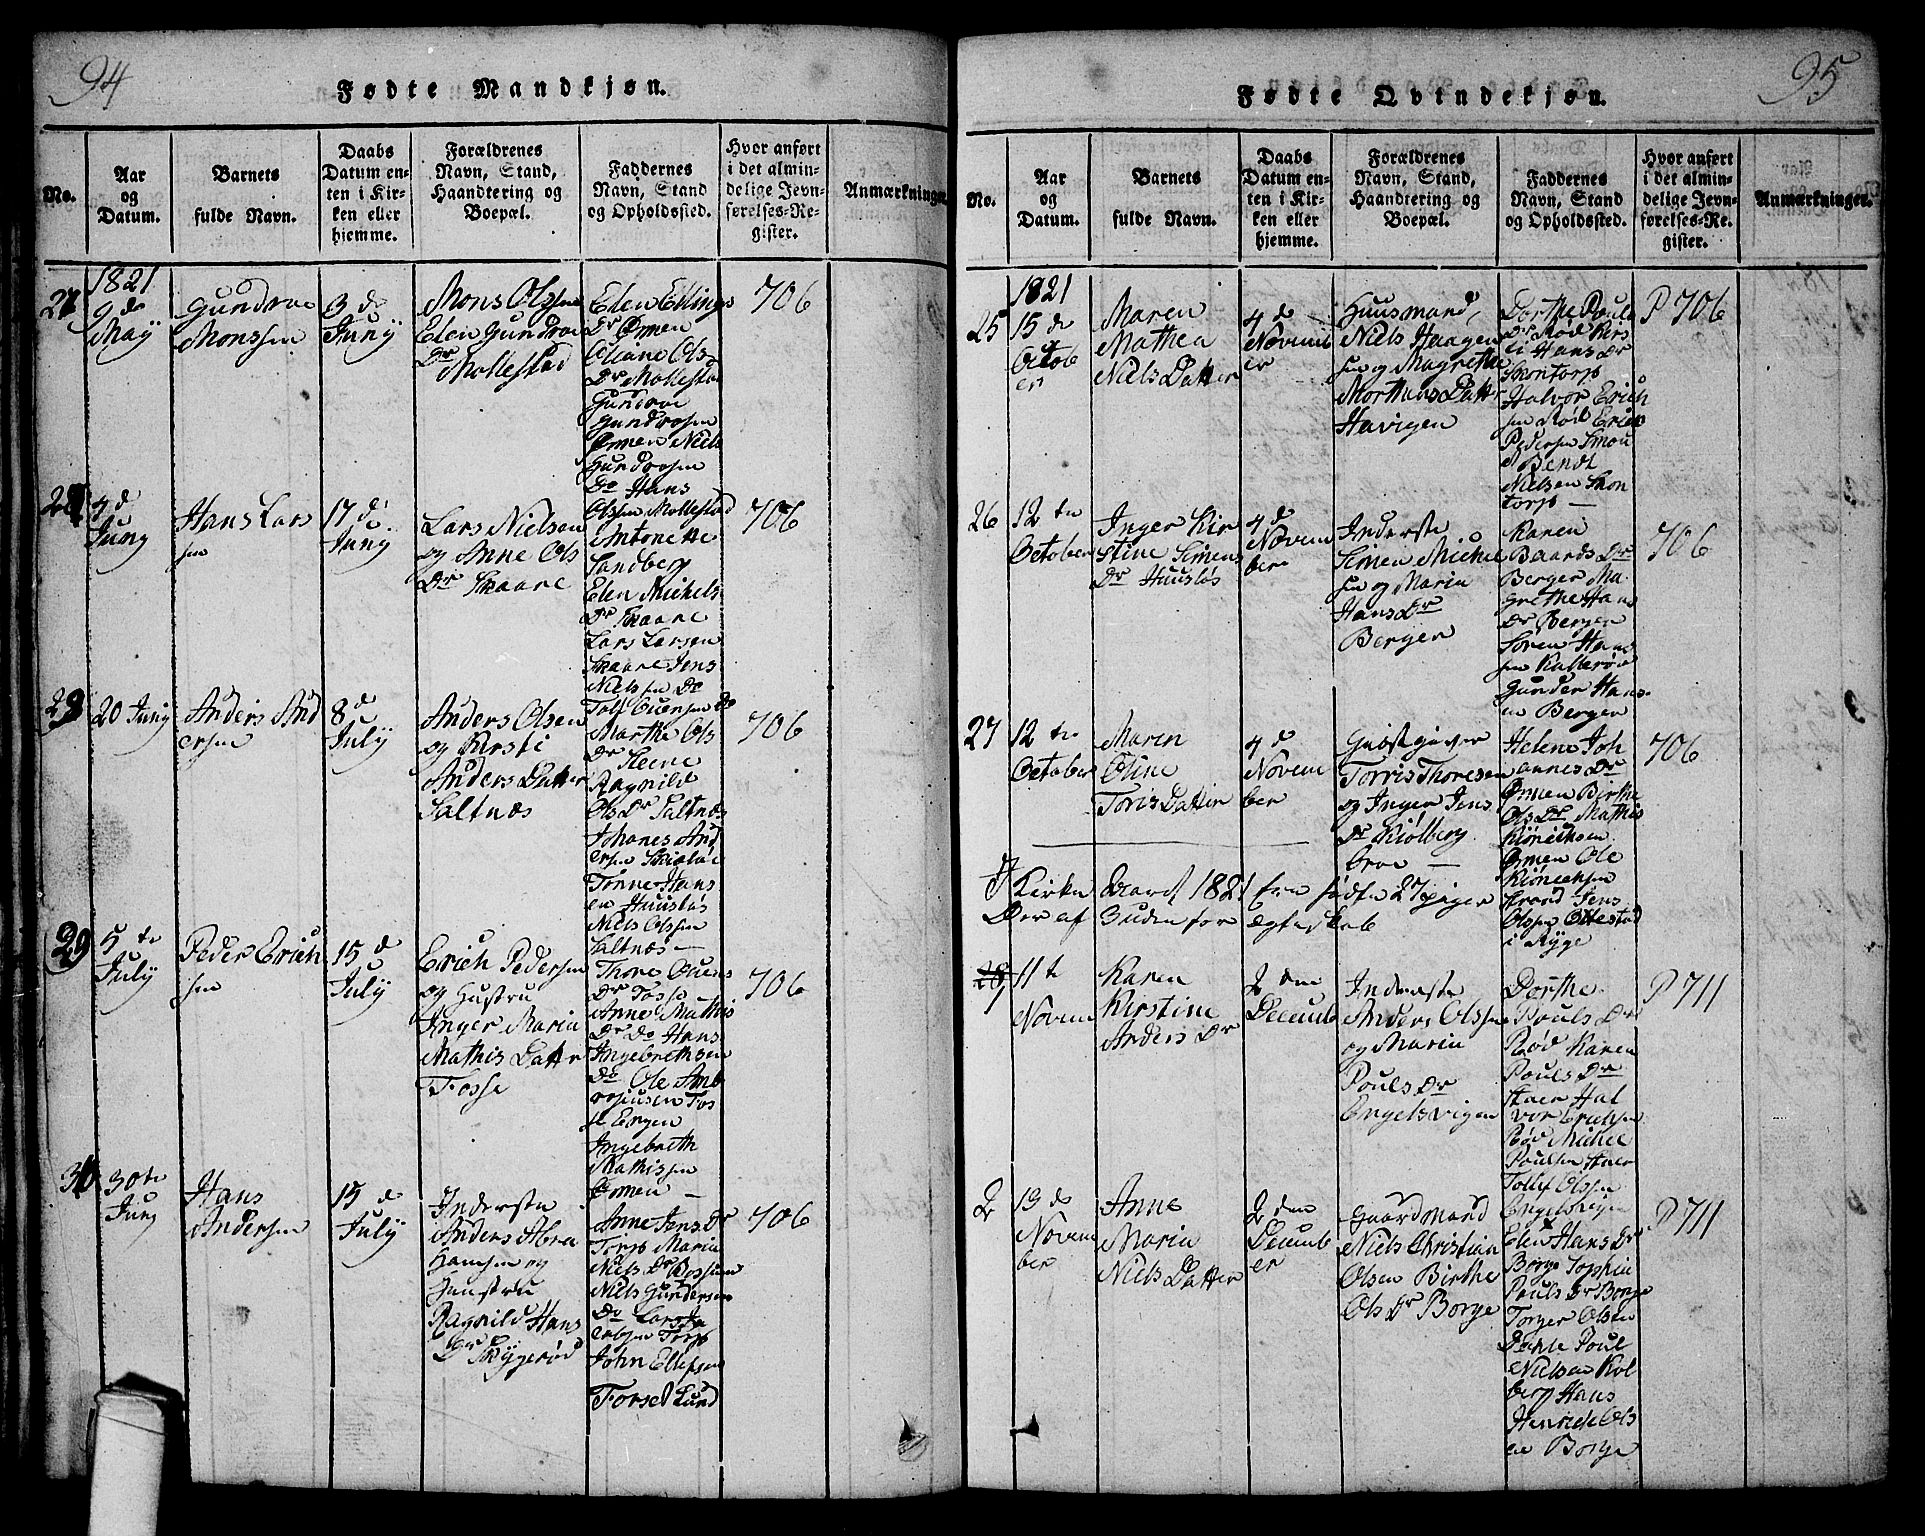 94
Fødte Mandkjøn.
No.
Aar
og
Datum.
Barnets
fulde Navn.
Daabs
Datum en-
ten i Kir-
ken eller
hjemme.
Forældrenes
Navn, Stand,
Haandtering og
Boepæl.
Faddernes
Navn, Stand
og Opholdssted.
Hvor anført
i det almin-
delige Jevn-
førelses-Re-
gister.
Anmærkninger.
27
1821
9 de
May
Gundroe
Monssen
3 de
Juny
Mons Olssen
Elen Gundroe
Dr
Mollestad
Elen Ellings
Dr Ørmen
Oleane Ols
Dr Mollestad
Gundroe
Gundrosen
Ørmen Niels
Gundrosen
Do Hans
Olssen Mollestad
706
28
4 de
Juny
Hans Lars
sen
17 de
Juny
Lars Nielsen
og Anne Ols
Dr Skaare
Antonette
Sandberg
Elen Mickels
Dr Skaare
Lars Larsen
Skaare Jens
Nielssen Do
Tolf Evensen Do
706
29
20 Juny
Anders And
ersen
8 de
July
Anders Olsen
og Kirsti
Anders Datter
Saltnæs
Marthe Ols
Dr Steene
Ragnild
Ols Dr Saltnæs
Johanes And
ersen
Tønne Hans
en Huusløs
Niels Olssen
Saltnæs
706
29
5 te
July
Peder Erich
sen
15 de
July
Erich Pedersen
og Hustru
Inger Maria
Mathis Datter
Fosse
Thore Ouens
Dr Fosse
Anne Mathis
Dr Do Hans
Ingebrethsen
Do Ole Amb
rosiusen Fos
se Ergen
Ingebreth
Mathissen
Ørmen
706
30
30te
Juny
Hans
Andersen
15 de
July
Inderste
Anders Abra
hamsen og
Hustru
Ragnild Hans
Dr Skygerød
Anne Jens Dr
Torp Maria
Niels Dr Rossum
Niels Gundersen
Do Lars Ja
cobsen Torp
John Ellefsen
Torsel Lund
706
95
Fødte Qvindekjøn.
No.
Aar
og
Datum.
Barnets
fulde Navn.
Daabs
Datum en-
ten i Kir-
ken eller
hjemme.
Forældrenes
Navn, Stand,
Haandtering og
Boepæl.
Faddernes
Navn, Stand
og Opholdssted.
Hvor anført
i det almin-
delige Jevn-
førelses-Re-
gister.
Anmærkninger.
1821
25
15 de
Octob
er
Maren
Mathea
Niels Datter
4 de
Novemb
er
Huusmand,
Niels Haagen
sen og Magrethe
Morthens Datter
Havigen
Dorthe Pouls
Dr Rød Kers
ti Hans Dr
Skontorp
Halvor Erich
sen Rød Erich
Pedersen Smou
Bendt
Nielsen Skon
torp
P 706
26
12 te
October
Inger Kir
stine Simens
Dr Huusløs
4 de
Novem
ber
Inderste
Simen Mickel
sen og Maria
Hans Dr
Bergen
Karen
Baards Dr
Berger Ma
grethe Hans
Dr Bergen
Søren Hans
sen Kallerød
Gunder Hans
en Berger
706
27
12 te
October
Maren
Oline
Toris Datter
4 de
Novem
ber
Giæstgiver
Torris Thoresen
og Inger Jens
Dr Kiølberg
broe
Helene Joh
annes Dr
Ørmen Birthe
Ols Dr Mathis
Kiønicksen
Ørmen Ole
Kiønicksen
Strand Jens
Olsen Ottestad
i Rygge
706
I Kirke Aaret 1821 ere fødte 27 piger
Der af 3 uden for Ægteskab
28
11 te
Novem
Karen
Kirstine
Anders Dr
2 den
Decemb
Inderste
Anders Olssen
og Maria
Pouls Dr
Engelsvigen
Dorthe
Pouls Dr
Rød Karen
Pouls Dr
Staer Hal
vor Erichsen
Rød Mickel
Poulsen Staer
Tollef Olssen
Engelsvigen
P 711
2
13 de
Novem
ber
Anne
Maria
Niels Datter
2 den
Decemb
er
Gaardmand
Niels Christian
Olsen Birthe
Ols Dr Borge
Elen Hans Dr
Borge Sophia
Pouls Dr Borge
Torger Olsen
Dahle Poul
Nielsen Kol
berg Hans
Henrich Ols
en Borge
P 711